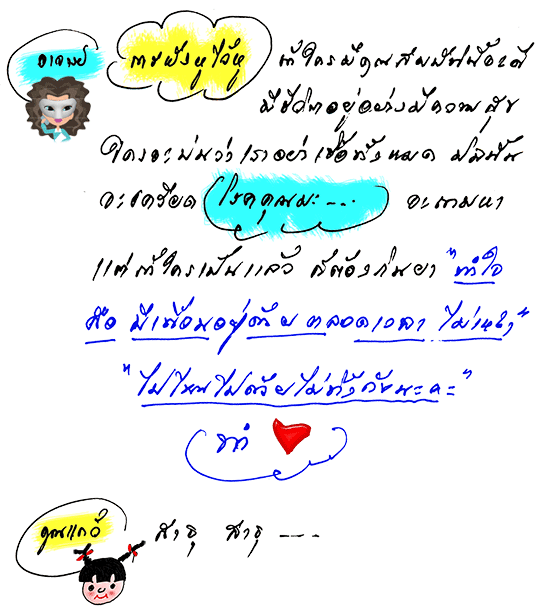 อาจมย์ การฟังหูไว้หู ถ้าใครมีคุณสมบัติข้อนี้
มีชีวิตอยู่อย่างมีความสุข
ใครจะบ่นว่า เราอย่าเชื่อทั้งหมด มิฉะนั้น
จะเครียด โรคคุณนะ --- จะตามมา
แต่ถ้าใครเป็นแล้ว ก็ต้องกินยา "ทำใจ
คือ มีเพื่อนอยู่ด้วย ตลอดเวลา ไม่เหงา"
"ไปไหนไปด้วยไม่ทิ้งกันนะคะ"
ขำ
คุณแก้ว สาธุ สาธุ ----